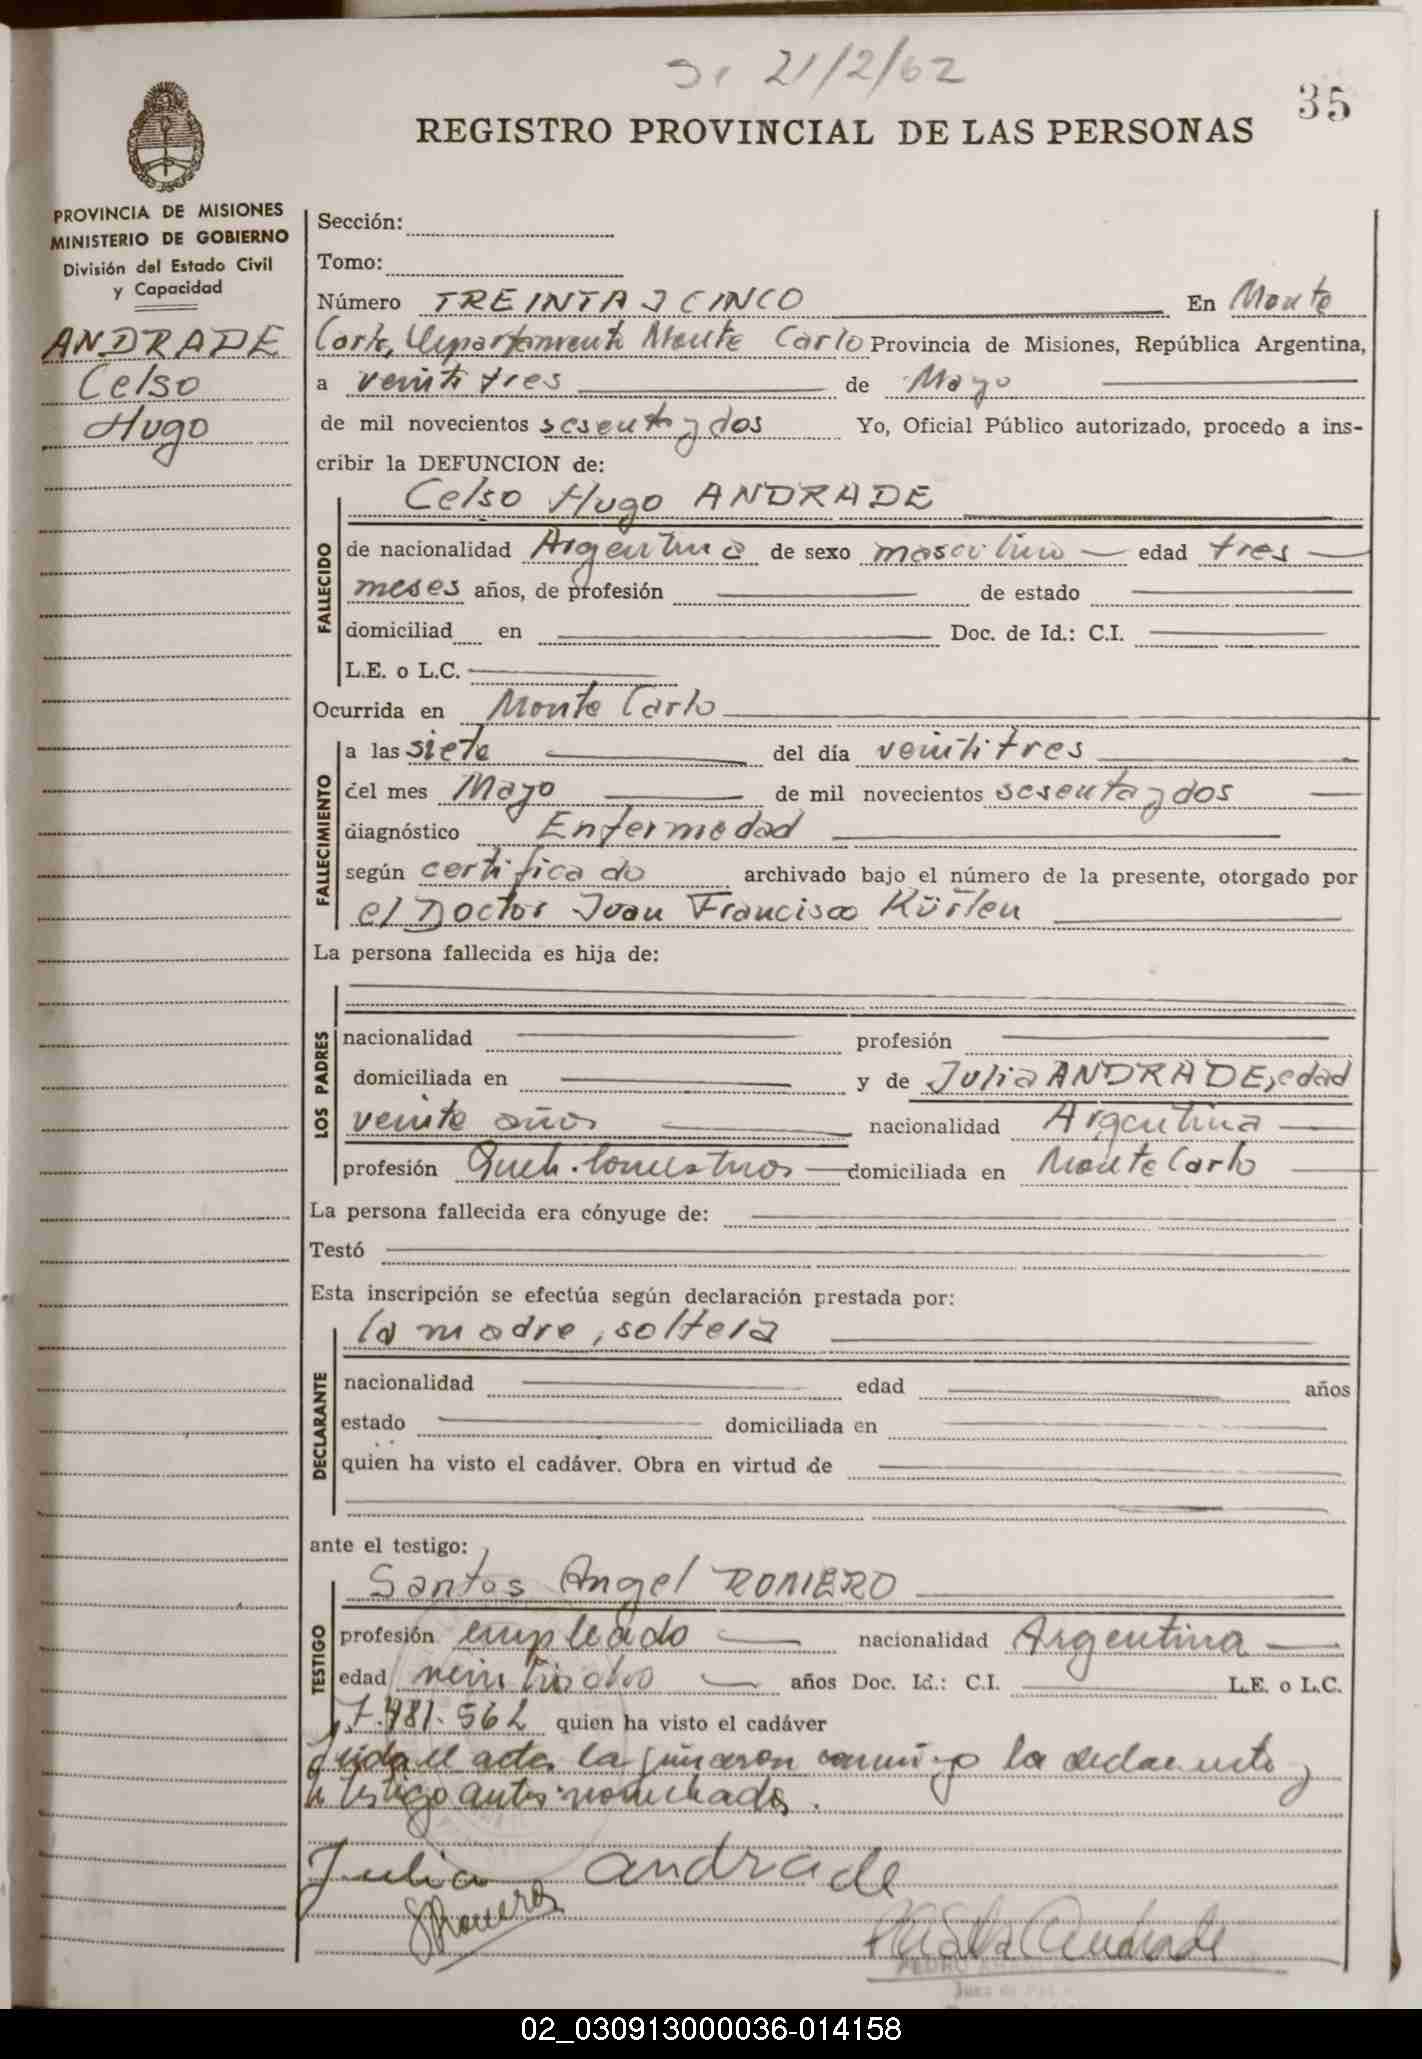 21/2/62
35
REGISTRO PROVINCIAL DE LAS PERSONAS
PROVINCIA DE MISIONES
MINISTERIO DE GOBIERNO
División del Estado Civil
y Capacidad
ANDRADE
Celso
Hugo
Sección:
Tomo:
Número TREINTA y CINCO En Monte
Carlo, Departamento Monte Carlo Provincia de Misiones, República Argentina,
a veintitres de Mayo
de mil novecientos sesenta y dos Yo, Oficial Público autorizado, procedo a ins-
cribir la DEFUNCION de:
FALLECIDO
Celso Hugo ANDRADE
de nacionalidad Argentina de sexo masculino edad tres
meses años, de profesión de estado
domiciliad en Doc. de Id.: C.I.
L.E. o L.C.
Ocurrida en Monte Carlo
FALLECIMIENTO
a las siete del día veintitres
del mes Mayo de mil novecientos sesenta y dos
diagnóstico Enfermedad
según certificado archivado bajo el número de la presente, otorgado por
el Doctor Juan Francisco
La persona fallecida es hija de:
LOS PADRES
nacionalidad profesión
domiciliada en y de Julia ANDRADE, edad
veinte años nacionalidad Argentina
profesión domiciliada en Monte Carlo
La persona fallecida era cónyuge de:
Testó
Esta inscripción se efectúa según declaración prestada por:
DECLARANTE
la madre, soltera
nacionalidad edad años
estado domiciliada en
quien ha visto el cadáver. Obra en virtud de
ante el testigo:
TESTIGO
Santos Angel ROMERO
profesión empleado nacionalidad Argentina
edad veintiocho años Doc. Id.: C.I. L.E. o L.C.
7.481.562 quien ha visto el cadáver
el acta la firmaron conmigo la declarante y
testigo antes nombrados.
Julia andrade
Romero
Andrade
PEDRO
02_030913000036-014158